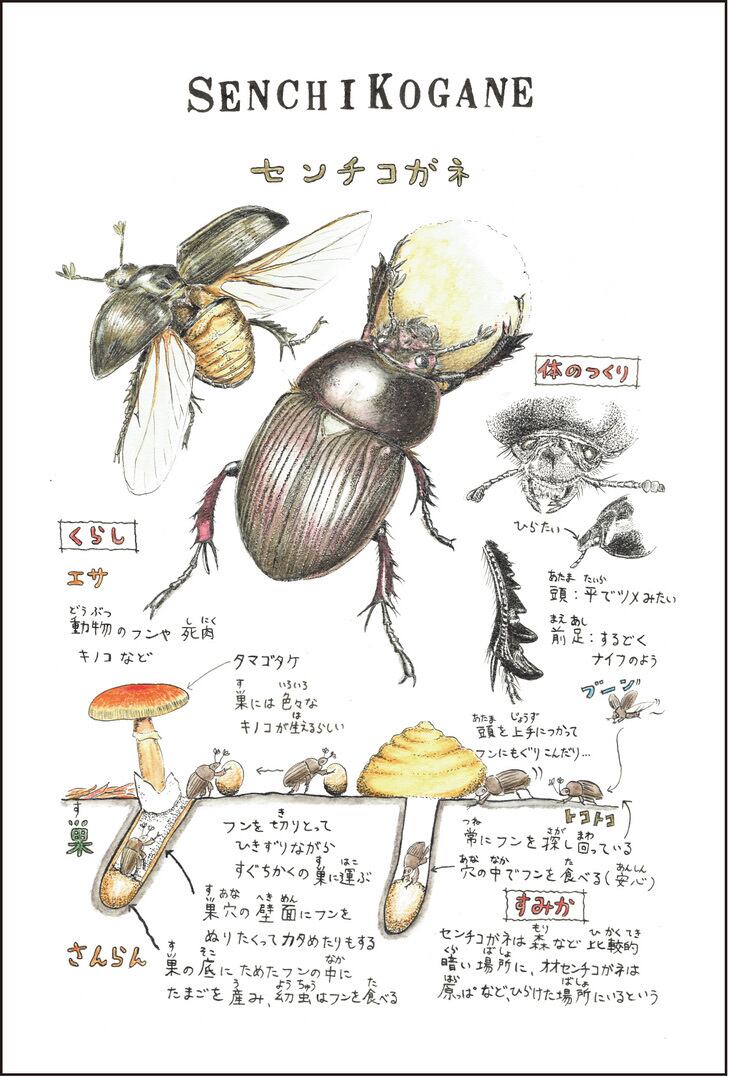 SENCHIKOGANE
センチコガネ
体のつくり
ひらたい
頭：平でツメみたい
あたま たいら
前足：するどく
まえ あし
ナイフのよう
くらし
エサ
どうぶつ し にく
動物のフンや死肉
キノコなど
タマゴタケ
す いろいろ
巣には色々な
は
キノコが生えるらしい
ブーン
あたま じょうず
頭を上手につかって
フンにもぐりこんだり…
トコトコ
つね さが まわ
常にフンを探し回っている
あな なか た あんしん
穴の中でフンを食べる(安心)
す
巣
き
フンを切りとって
ひきずりながら
す はこ
すぐちかくの巣に運ぶ
す あな へき めん
巣穴の壁面にフンを
ぬりたくってカタめたりもする
さんらん
す そこ なか
巣の底にためたフンの中に
う ようちゅう た
たまごを産み、幼虫はフンを食べる
すみか
もり ひかくてき
センチコガネは森など比較的
くら ばしょ
暗い場所に、オオセンチコガネは
はら ばしょ
原っぱなど、ひらけた場所にいるという